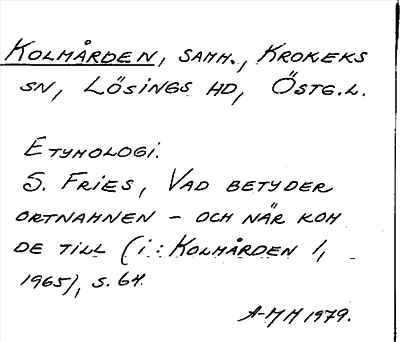 KOLMÅRDEN, SAMH., KROKEKS
SN, LÖSINGS HD, ÖSTG.L.
ETYMOLOGI.
S. FRIES, VAD BETYDER
ORTNAMNEN – OCH NÄR KOM
DE TILL (i: KOLMÅRDEN 1,
1965), S. 64.
A-MH 1979.